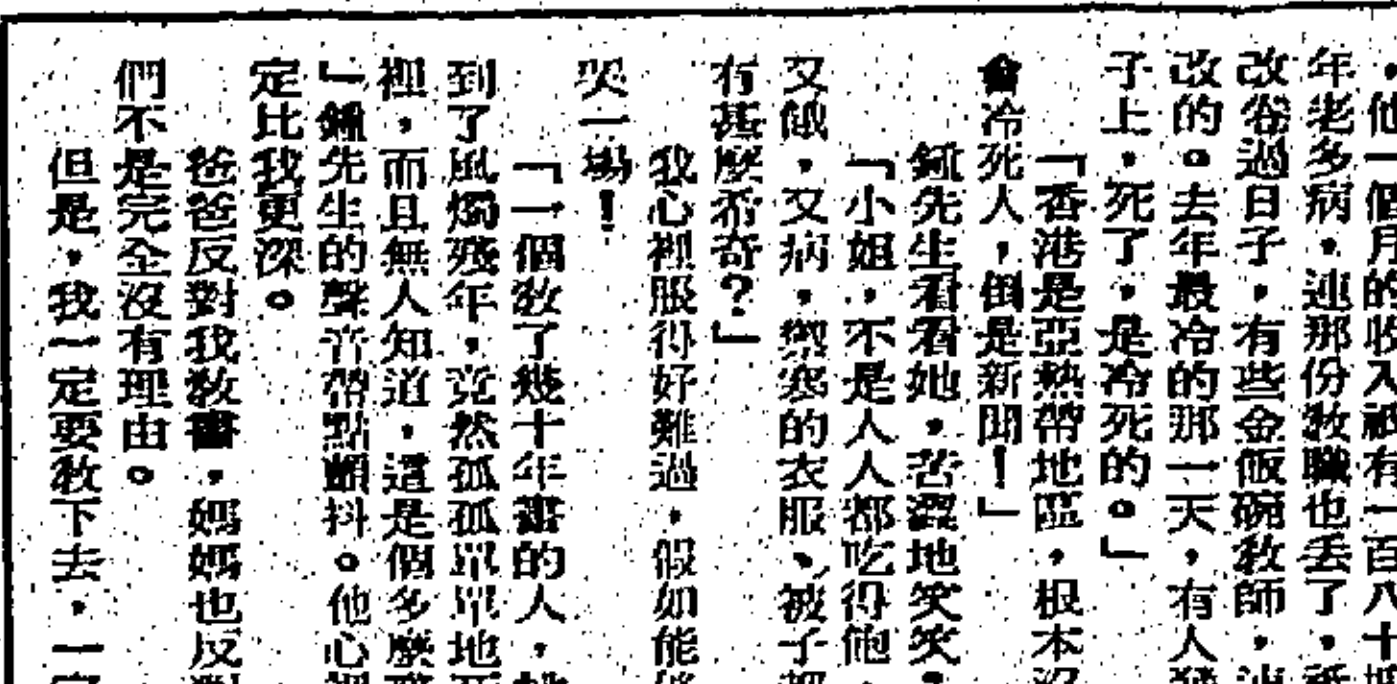 ，他一個月的收入祇有一百八十
年老多病，連那份教職也丟了，
改卷過日子，有些金飯碗教師，
改的。去年最冷的那一天，有人發
子上，死了，是冷死的。」
「香港是亞熱帶地區，根本沒
會冷死人，倒是新聞！」
鍾先生看看她，苦澀地笑笑，
「小姐，不是人人都吃得飽，
又餓，又病，禦寒的衣服、被子都
有甚麼希奇？」
我心裡服得好難過，假如能
哭一場！
「一個教了幾十年書的人，
到了風燭殘年，竟然孤孤單單地死
裡，而且無人知道，這是個多麼
」鍾先生的聲音帶點顫抖。他心裡
定比我更深。
爸爸反對我教書，媽媽也反對
們不是完全沒有理由。
但是，我一定要教下去，一定